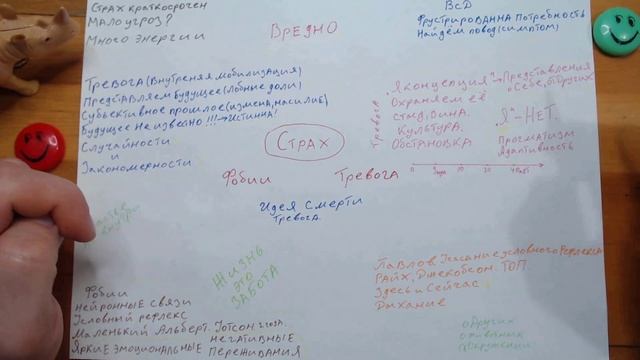 Страх краткосрочен
Мало угроз?
Много энергии
Вредно
ВСД
Фрустрированна Потребность
Найдём повод (симптом)
Тревога (внутреняя мобилизация)
Представляем будущее (лобные доли)
Субъективное прошлое (измена, насилие)
Будущее не извесно!!! → Истинна!
Случайности
и
Закономерности
Страх
Фобии
Тревога
Тревога
"Я концепция" → Представления
о себе, от других
Охраняем её
стыд, вина.
Культура.
Обстановка
"Я" - Нет.
Прогматизм
Адаптивность
0
10
20
30
40 лет
Идея Смерти
Тревога
Жизнь
это
Забота
Фобии
Нейронные связи
Условный рефлекс
Маленький Альберт.
Яркие эмоциональные негативные
Переживания
Павлов Угасание условного Рефлекса
Райх, Джекобсон. ТОП.
Здесь и Сейчас
Дыхание
о Других
о живатных
о Окружении